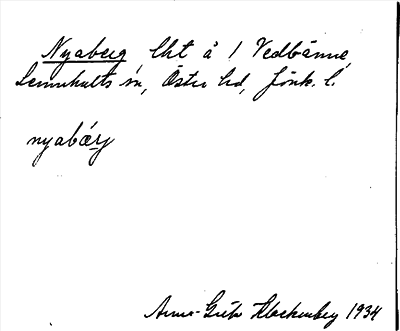 Nyaberg lht å 1 Vedbänne,
Lemnhults sn, Östra hd, Jönk. l.
nyabárj
Anna-Greta Klockenberg 1934